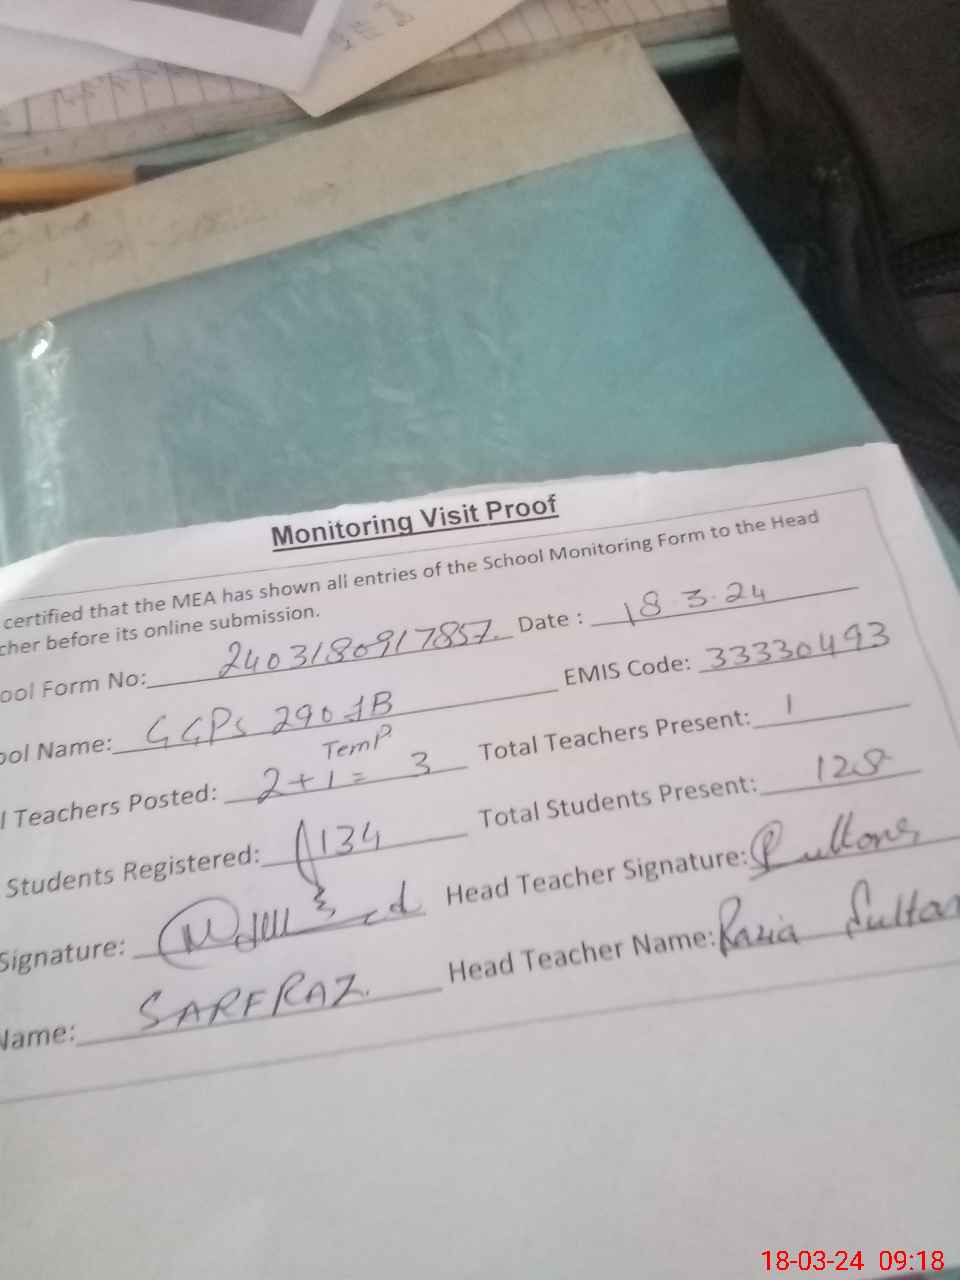 Monitoring Visit Proof
certified that the MEA has shown all entries of the School Monitoring Form to the Head
cher before its online submission.
ool Form No: 2403180917857. Date : 18.3.24
ool Name: GGPS 290 JB EMIS Code: 33330493
l Teachers Posted: 2+1 Temp = 3 Total Teachers Present: 1
Students Registered: 134 Total Students Present: 128
Signature: Head Teacher Signature:
Name: SARFRAZ. Head Teacher Name: Razia Sultan
18-03-24 09:18